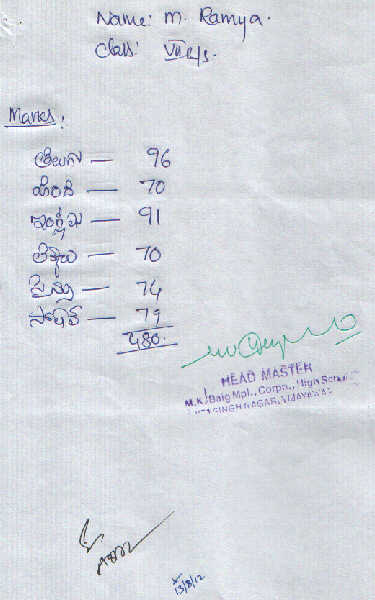 Name: M. Ramya.
Class: VII
Marks:
తెలుగు — 96
హిందీ — 70
ఇంగ్లీషు — 91
లెక్కలు — 70
సైన్సు — 74
సోషల్ — 79
480.
HEAD MASTER
M.K. Baig Mpl., Corpn., High School
SINGH NAGAR, VIJAYAWADA
13/8/12